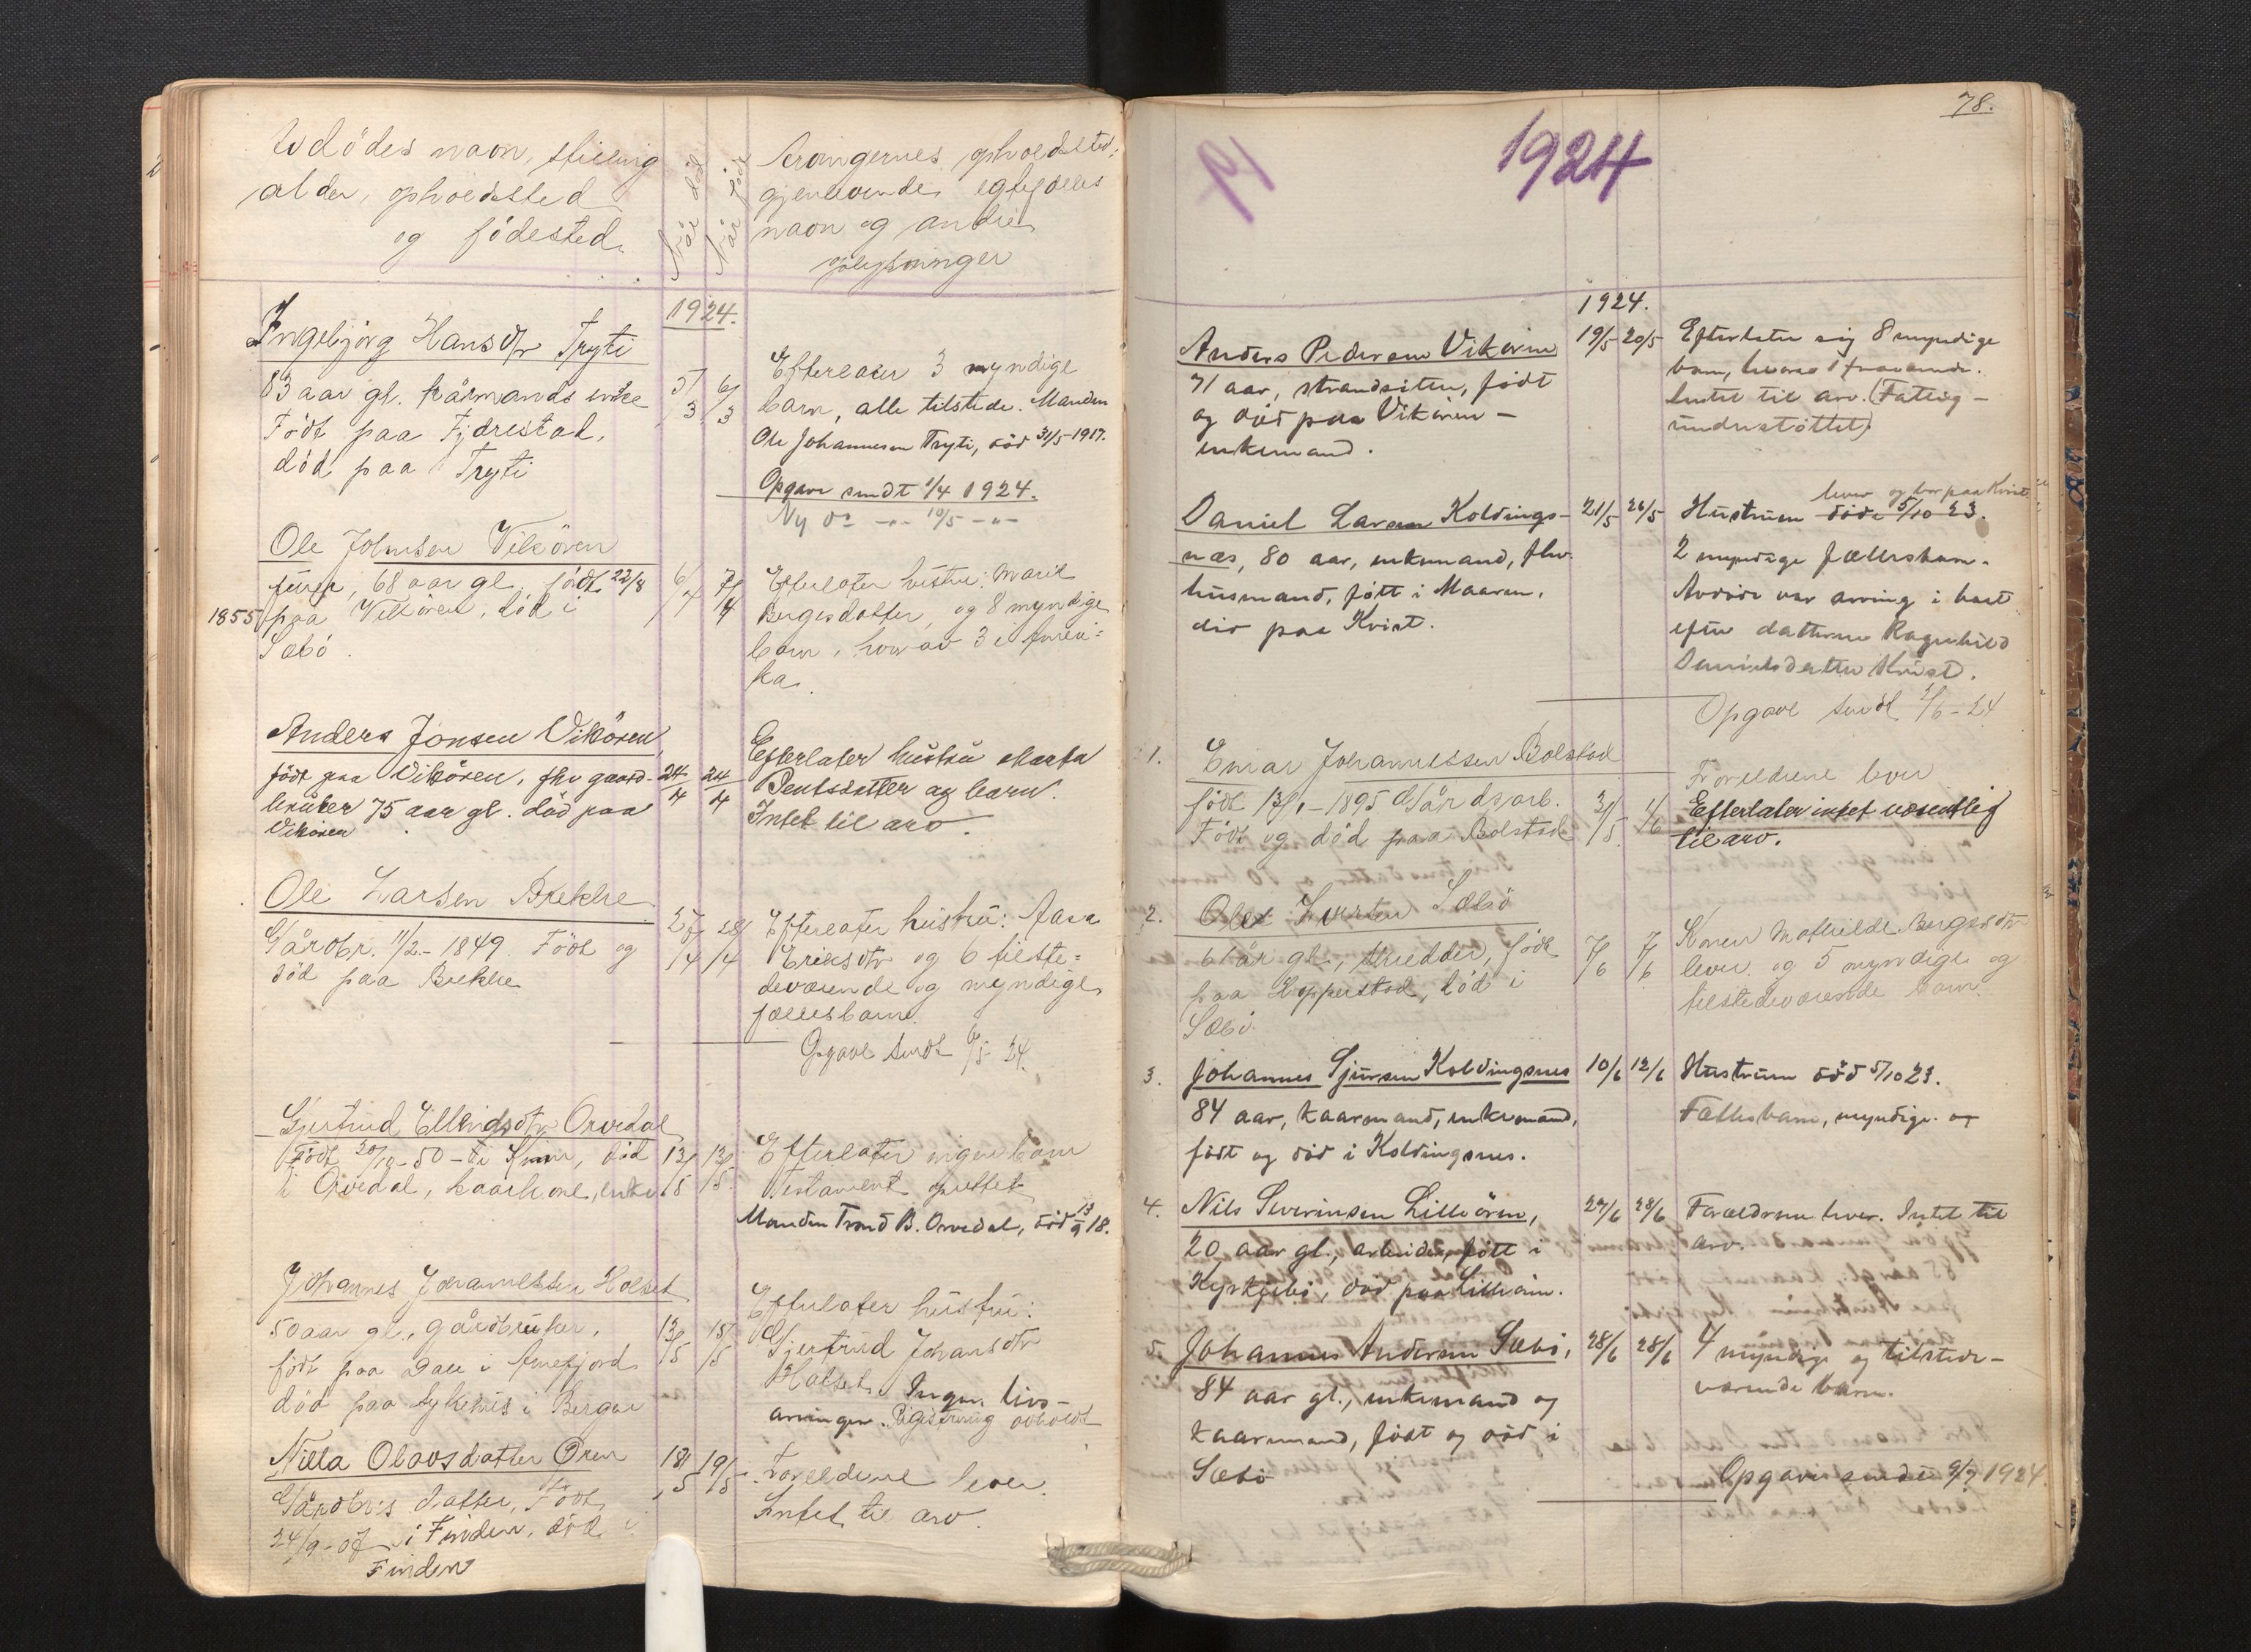 Avdödes navn, stilling
alder, opholdssted
og födested.
Når död
Når født
Arvingernes opholdsted,
gjenlevende egtefelles
navn og andre
oplysninger
1924.
Ingebjörg Hansdtr Tryti
83 aar gl. kårmands enke
Född paa Fjdrestad,
död paa Tryti
5/3 6/3
Efterlater 3 myndige
barn, alle tilstede. Manden
Ole Johannesen Tryti, död 31/5-1917.
Opgave sendt 1/4 1924.
Ny do -"- 10/5 -"-
Ole Johnsen Vikören
furer, 68 aar gl. född 22/8
1855 paa Vikören, död i
Sæbö.
6/4 7/4
Efterlater hustru: Marit
Bergesdatter, og 8 myndige
barn, hvorav 3 i Ameri-
ka.
Anders Jonsen Vikören
född paa Vikören, fhv gaard-
bruker 75 aar gl. död paa
Vikören
24/4 24/4
Efterlater hustru Marta
Bentsdatter og barn.
Intet til arv.
Ole Larsen Brekke
Gårdbr. 11/2-1849. Född og
död paa Brekke
27/4 28/4
Efterlater hustru: Anna
Eriksdtr og 6 tilste-
deværende og myndige
fællesbarn.
Opgave sendt 6/5-24.
Gjertrud Ellendsdtr Orvedal
Född 20/10-50 - i, död
i Orvedal, kaarkone, enke
13/5 13/5
Efterlater ingen barn
Testament oprettet
Manden Trond B. Orvedal, död 13/9 18.
Johannes Johannessen Holset
50 aar gl., gårdbruker,
född paa Dale i Arnefjord
död paa sykehus i Bergen
13/5 15/5
Efterlater hustru:
Gjertrud Johansdtr
Holset. Ingen livs-
arvinger. Registrering avholdt
Nilla Olavsdatter Ören
Gårdbr's datter, Född
24/9-07 i Finden, död i
Finden
18/5 19/5
Foreldrene lever.
Intet til arv.
78.
19
1924
1924.
Anders Pedersen Vikören
71 aar, strandsitter, født
og död paa Vikören -
enkemand.
19/5 20/5
Efterlater sig 8 myndige
barn, hvorav 1 fraværende.
Intet til arv. (Fattig-
understöttet).
Daniel Larsen Koldings-
næs, 80 aar, enkemand, fhv.
husmand, født i Maaren,
död paa Kvist.
21/5 26/5
lever og bor paa Kvist
Hustruen døde 5/10 23.
2 myndige fællesbarn.
Avdöde var arving i boet
efter datteren Ragnhild
Danielsdatter Kvist.
Opgave sendt 2/6-24
1. Einar Johannessen Bolstad
född 13/1-1895 Gårdsarb.
Född og död paa Bolstad
31/5 1/6
Foreldrene lever
Efterlater intet væsentlig
til arv.
2. Sæbö
61 år gl., skredder, född
paa Hopperstad, död i
Sæbö.
7/6 7/6
Konen Mathilde Bergesdtr
lever og 5 myndige og
tilstedeværende barn.
3. Johannes Sjursen Koldingsnes
84 aar, kaarmand, enkemand,
født og död i Koldingsnes.
10/6 12/6
Hustruen död 5/10 23.
Fællesbarn, myndige. og
4. Nils Severinsen Lilleören,
20 aar gl., arbeider, født i
Kyrkjebö, död paa Lilleören.
27/6 28/6
Forældrene lever. Intet til
arv.
5. Johannes Andersen Sæbö,
84 aar gl., enkemand og
kaarmand, födt og död i
Sæbö
28/6 28/6
4 myndige og tilstede-
værende barn.
Opgave sendt 9/7 1924.